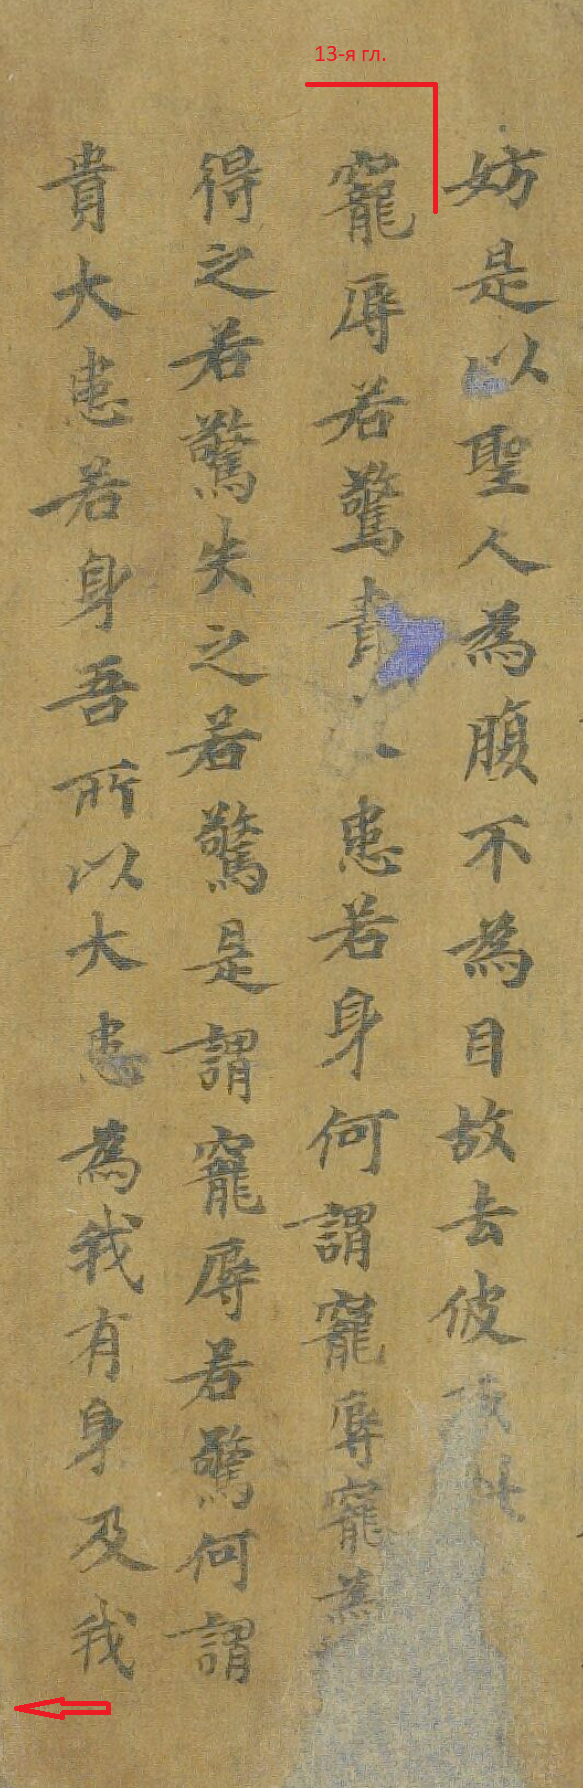 13-я гл.
妨是以聖人為腹不為目故去彼取此
寵辱若驚貴大患若身何謂寵辱寵為
得之若驚失之若驚是謂寵辱若驚何謂
貴大患若身吾所以大患為我有身及我